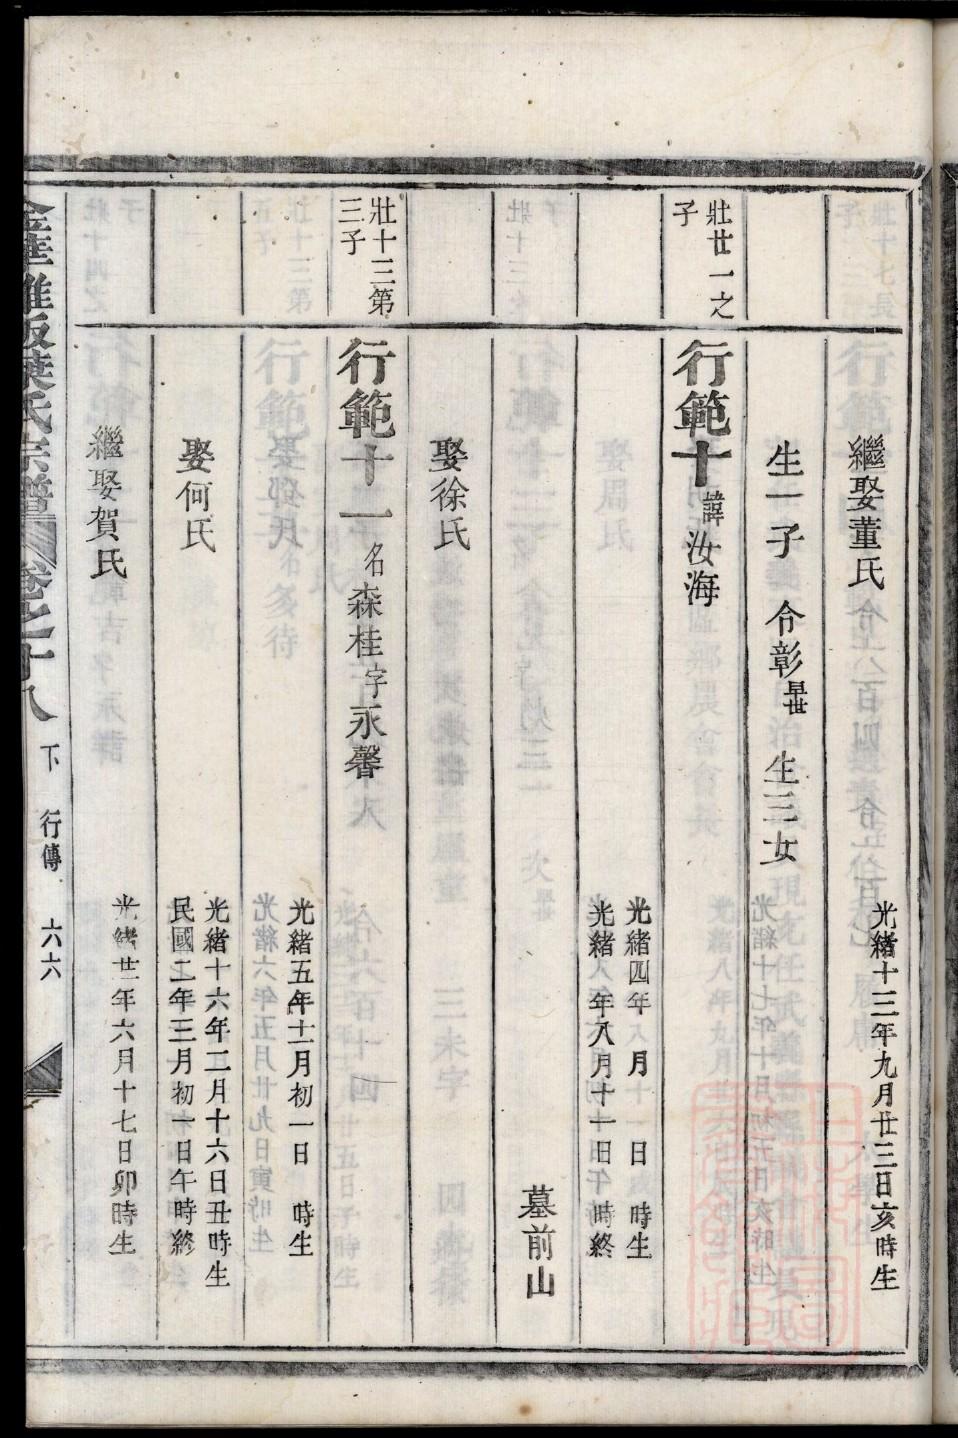 繼娶董氏 光緒十三年九月廿三日亥時生
生一子 令彰早世 生三女
壯廿一之子
行範十 諱汝海
光緒四年 月 日 時生
光緒 年八月十一日 時終
墓前山
娶徐氏
壯十三第三子
行範十一 名森桂字永馨
光緒五年十一月初一日 時生
娶何氏
光緒十六年二月十六日丑時生
民國二年三月初一日午時終
繼娶賀氏 光緒廿二年六月十七日卯時生
葉氏宗譜 卷之十八 下 行傳 六六